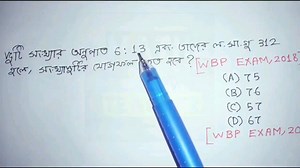 দুটি সংখ্যার অনুপাত 6:13 এবং তাদের ল.সা.গু 312
হলে, সংখ্যাদুটির যোগফল কত হবে?
[WBP EXAM, 2018]
(A) 75
(B) 76
(C) 57
(D) 67
[WBP EXAM, 20